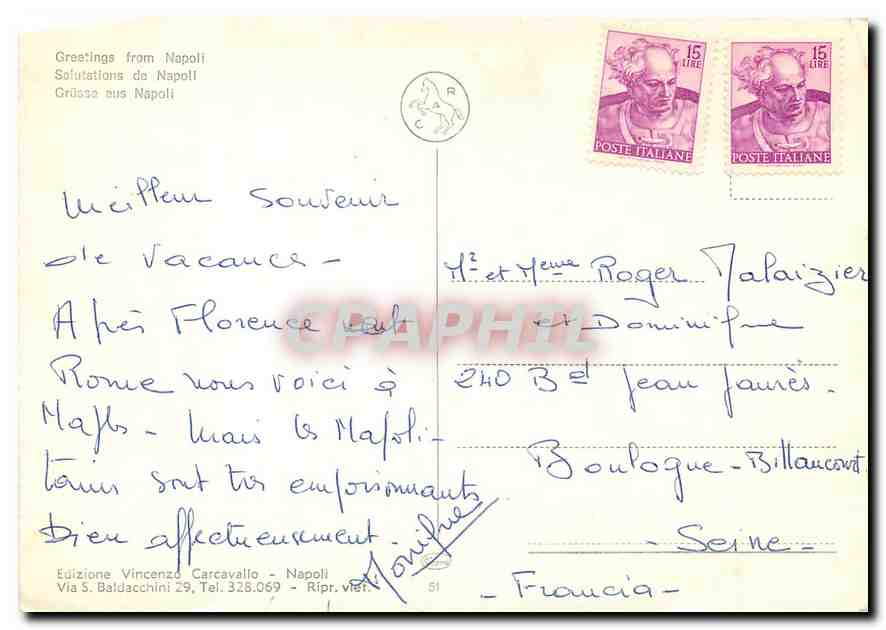 Greetings from Napoli
Salutations de Napoli
Grüsse aus Napoli
C A R
15 LIRE
POSTE ITALIANE
15 LIRE
POSTE ITALIANE
Meilleur Souvenir
de Vacance -
Après Florence
Rome nous voici à
Naples - Mais les Napoli-
tains sont très empoisonnants
Bien affectueusement -
Monique
Mr et Meme Roger Malaizier
et Dominique
240 Bd Jean Jaurès.
Boulogne-Billancourt
- Seine -
- Francia -
CPAPHIL
Edizione Vincenzo Carcavallo - Napoli
Via S. Baldacchini 29, Tel. 328.069 - Ripr. viet.
51